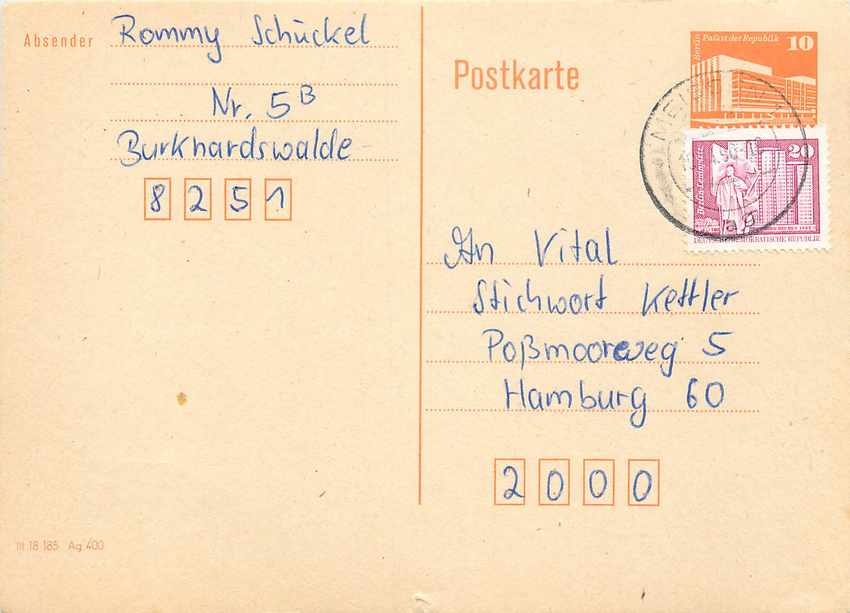 Absender Rommy Schückel
Nr. 5B
Burkhardswalde
8251
Postkarte
Berlin Palast der Republik 10
20
Berlin-Leninplatz
DEUTSCHE DEMOKRATISCHE REPUBLIK
ag
An Vital
Stichwort Kettler
Poßmoorweg 5
Hamburg 60
2000
III 18 185 Ag 400